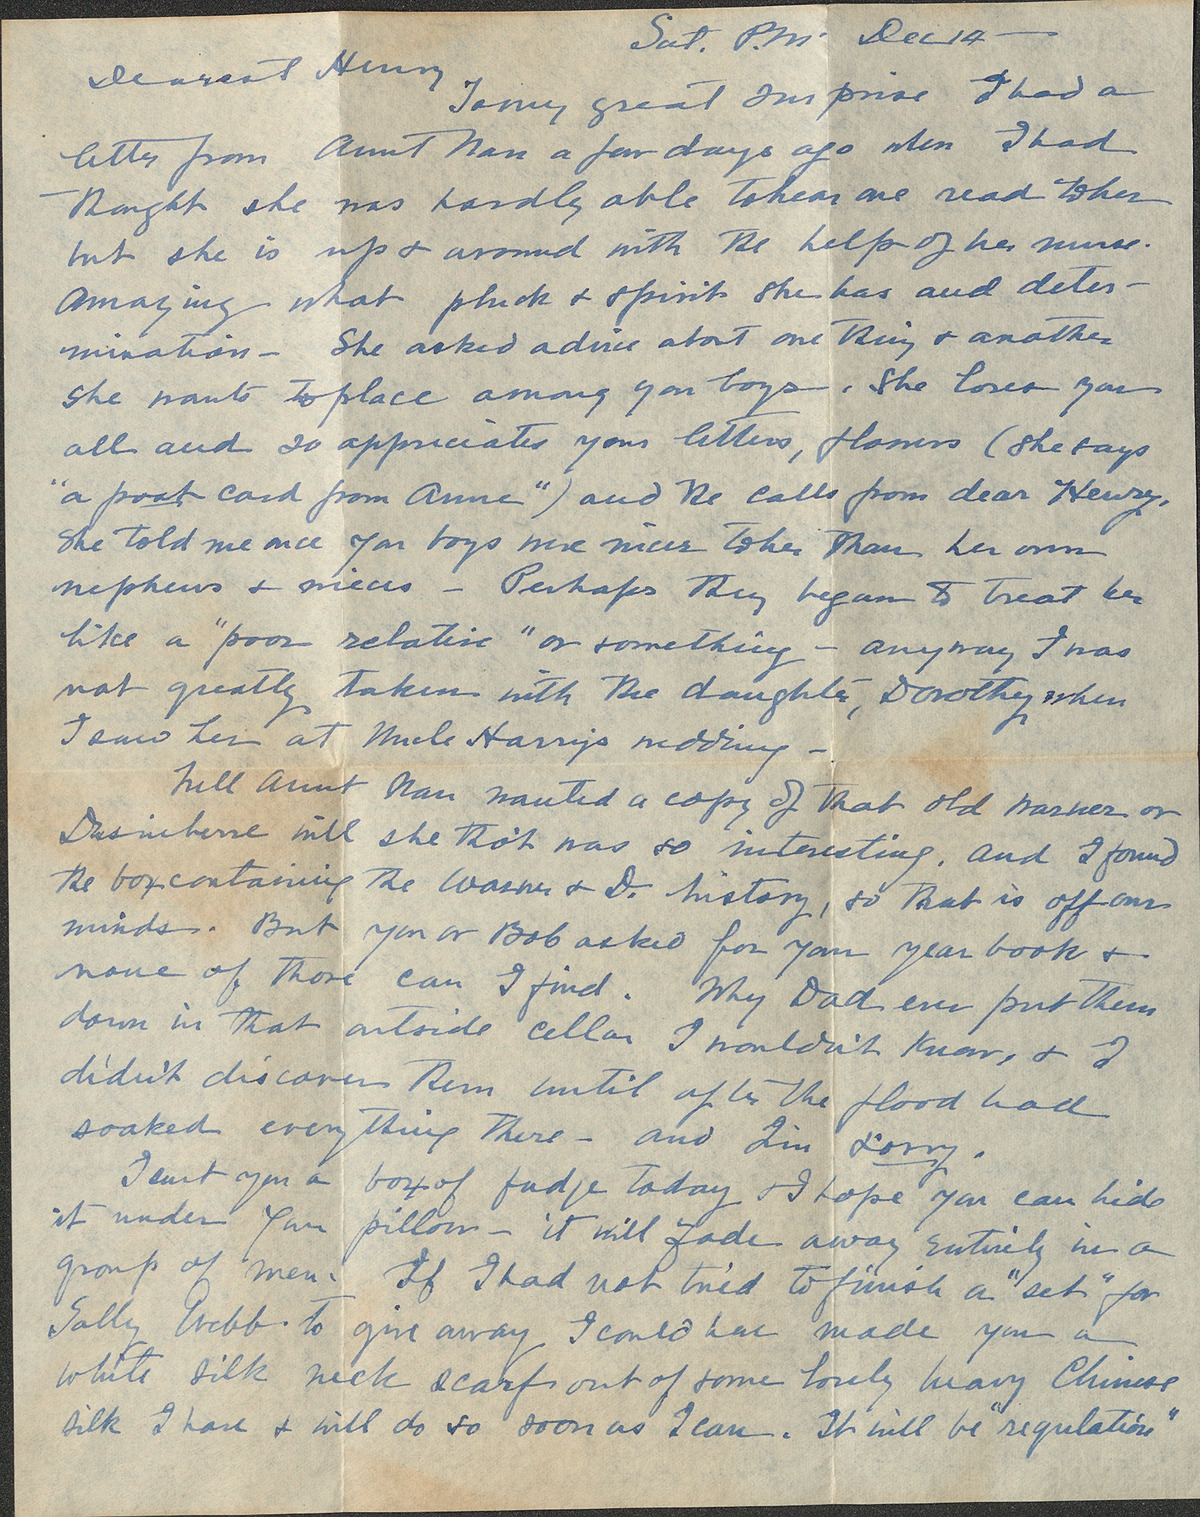 Sat. P.M. Dec 14 —
Dearest Henry
To my great surprise I had a
letter from Aunt Nan a few days ago when I had
thought she was hardly able to hear me read to her
but she is up & around with the help of her nurse.
Amazing what pluck & spirit she has and deter-
mination — She asked advice about one thing & another
she wants to place among you boys. She loves you
all and so appreciates your letters, flowers (she says
"a post card from Anne") and the calls from dear Henry.
She told me once you boys were nicer to her than her own
nephews & nieces — Perhaps they began to treat her
like a "poor relative" or something — anyway I was
not greatly taken with the daughter, Dorothy when
I saw her at Uncle Harry's wedding —
Well Aunt Nan wanted a copy of that old Warner or
Dusinberre will she tho't was so interesting. And I found
the box containing the Warner & D. history, so that is off our
minds. But you or Bob asked for your year book &
none of those can I find. Why Dad ever put them
down in that outside cellar I wouldn't know, & I
didn't discover them until after the flood had
soaked everything there — and I'm sorry.
I sent you a box of fudge today & I hope you can hide
it under your pillow — it will fade away entirely in a
group of men. If I had not tried to finish a "set" for
Sally Webb to give away I could have made you a
white silk neck scarf out of some lovely heavy Chinese
silk I have & will do so soon as I can. It will be "regulation"